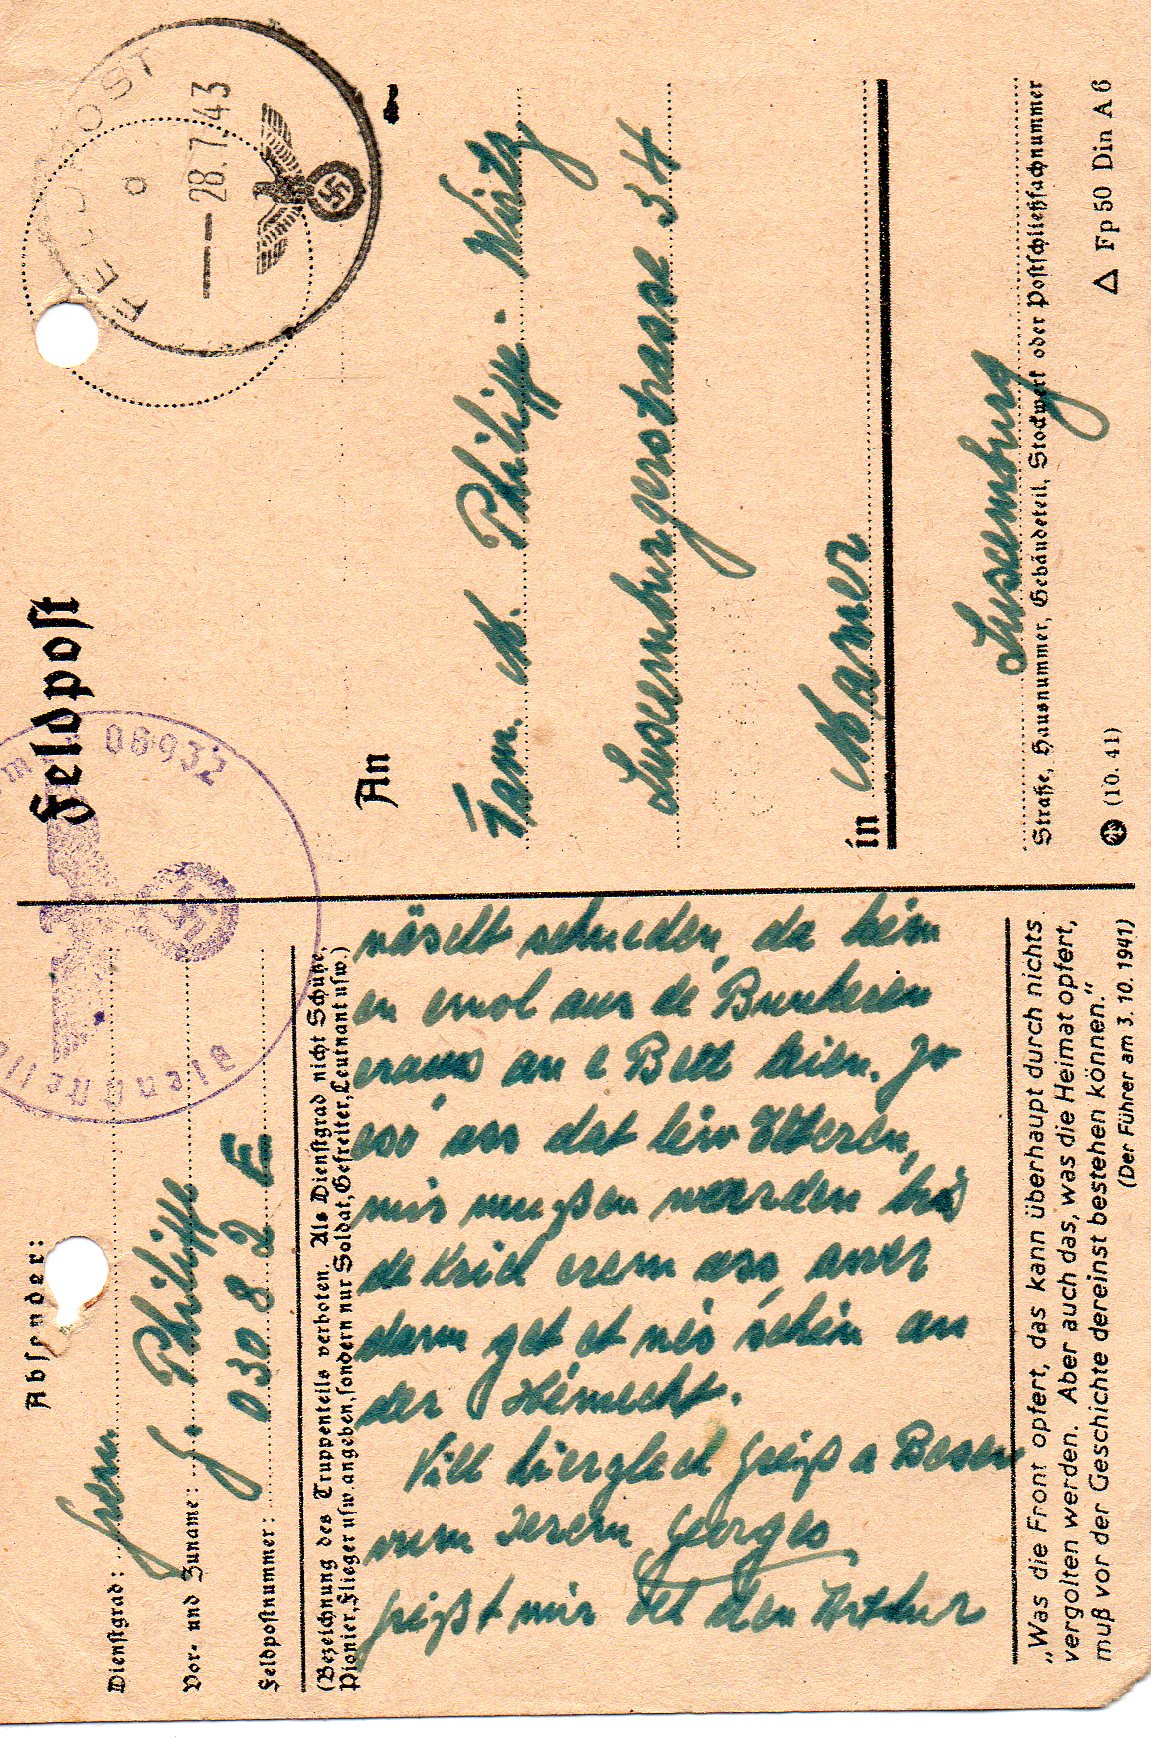 Feldpost
Absender:
Dienstgrad: Gren
Vor- und Zuname: G. Philippe
Feldpostnummer: 03082 E
(Bezeichnung des Truppenteils verboten. Als Dienstgrad nicht Schütze,
Pionier, Flieger usw. angeben, sondern nur Soldat, Gefreiter, Leutnant usw.)
schneden, da këim
en emol aus de Bunkeren
eraus an e Bett leien. Jo
eso ass dat leiw Elteren,
mir mussen waarden bis
de Krich erem ass, awer
dann get et nës schéin an
der Hémecht.
Vill hierzlech Gréiß a Besen
vum Jerem Georges
gréißt mir och den Arthur
„Was die Front opfert, das kann überhaupt durch nichts
vergolten werden. Aber auch das, was die Heimat opfert,
muß vor der Geschichte dereinst bestehen können.“
(Der Führer am 3. 10. 1941)
FELDPOST
a
28.7.43
08932
Dienststelle
An
Fam. M. Philippe-Wirtz
Luxemburgerstrasse 34
in Mamer
Luxemburg
Straße, Hausnummer, Gebäudeteil, Stockwerk oder Postschließfachnummer
(10. 41)
△ Fp 50 Din A 6